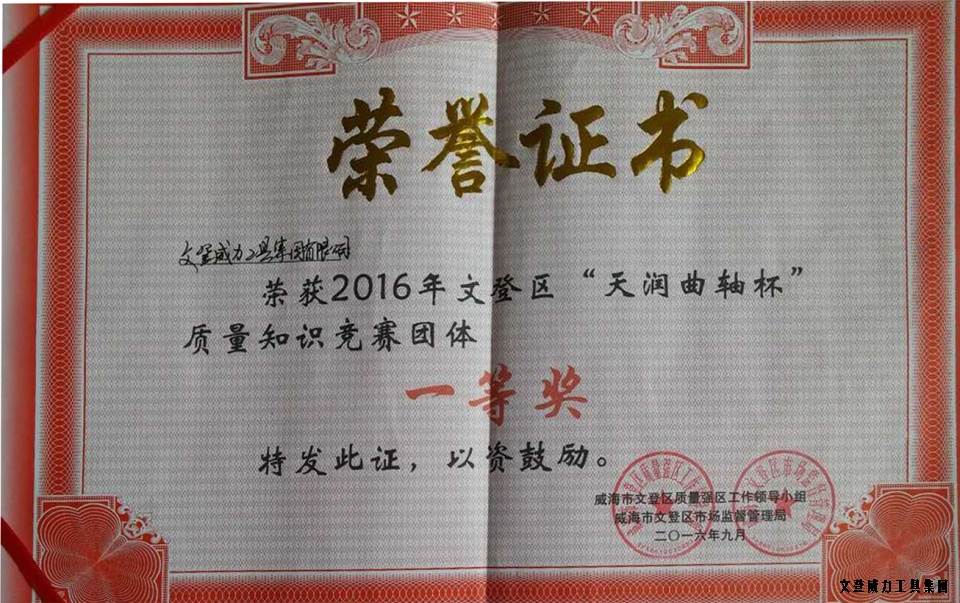 荣誉证书
文登威力工具集团有限公司
荣获2016年文登区“天润曲轴杯”
质量知识竞赛团体
一等奖
特发此证，以资鼓励。
威海市文登区质量强区工作领导小组
威海市文登区市场监督管理局
二〇一六年九月
文登威力工具集团